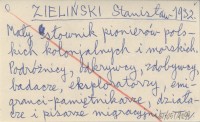 ZIELIŃSKI Stanisław - 1932
Mały słownik pionierów pols-
kich kolonjalnych i morskich.
Podróżnicy, odkrywcy, zdobywcy,
badacze, eksploratorzy, emi-
granci - pamiętnikarze, działa-
cze i pisarze migracyjni